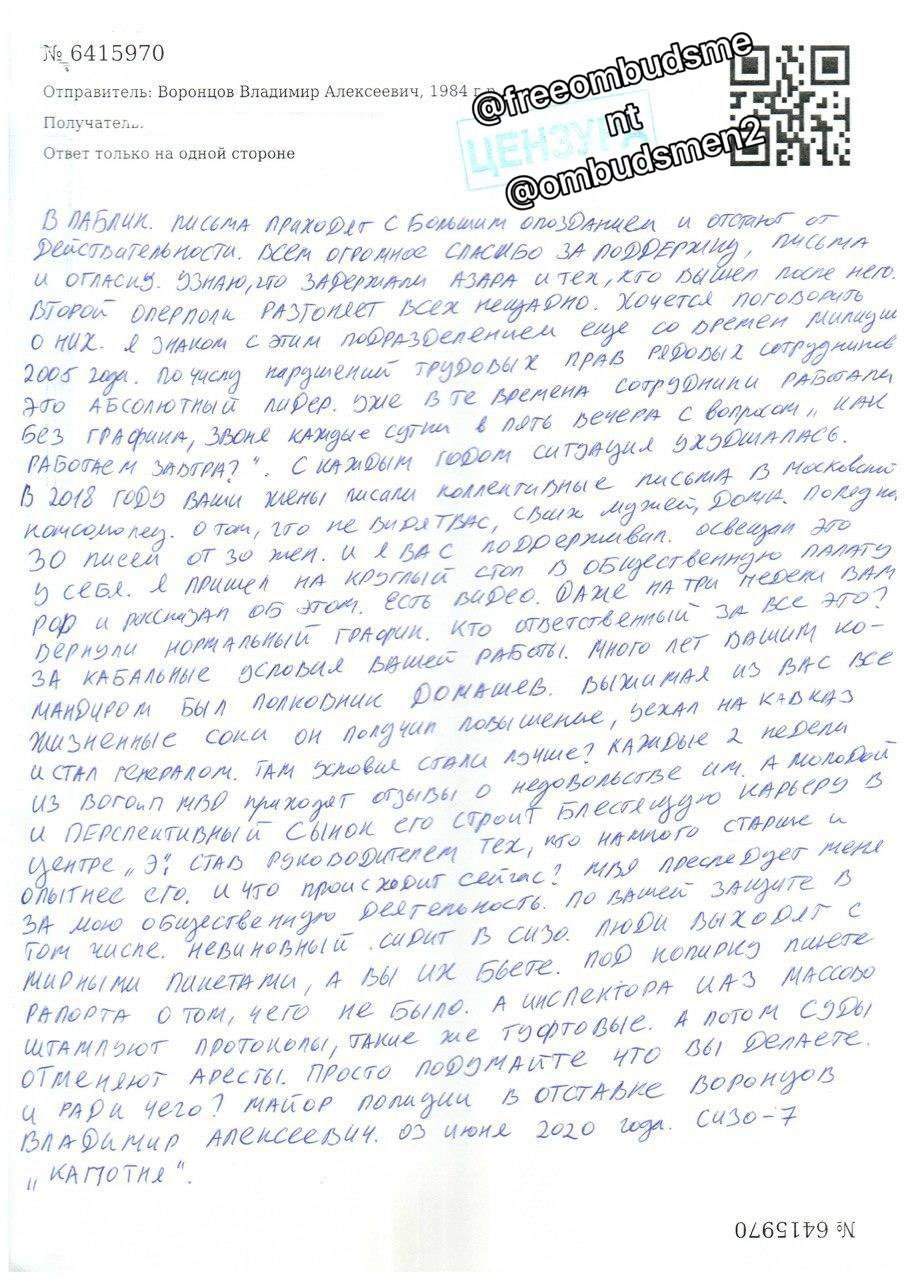 № 6415970
Отправитель: Воронцов Владимир Алексеевич, 1984 г.р.
@freeombudsme
nt
@ombudsmen2
Получатель:
ЦЕНЗУРА
Ответ только на одной стороне
В паблик. Письма приходят с большим опозданием и отстают от
действительности. Всем огромное спасибо за поддержку, письма
и огласку. Узнаю, что задержали Азара и тех, кто вышел после него.
Второй оперполк разгоняет всех нещадно. Хочется поговорить
о них. Я знаком с этим подразделением еще со времен милиции
2005 года. По числу нарушений трудовых прав рядовых сотрудников
это абсолютный лидер. Уже в те времена сотрудники работали
без графика, звоня каждые сутки в пять вечера с вопросом „как
работаем завтра?“. С каждым годом ситуация ухудшалась.
В 2018 году ваши жены писали коллективные письма в Московский
комсомолец. О том, что не видят вас, своих мужей, дома. Порядка
30 писем от 30 жен. И я вас поддерживал. Освещал это
у себя. Я пришел на круглый стол в общественную палату
РФ и рассказал об этом. Есть видео. Даже на три недели вам
вернули нормальный график. Кто ответственный за все это?
За кабальные условия вашей работы. Много лет вашим ко-
мандиром был полковник Домашев. Выжимая из вас все
жизненные соки он получил повышение, уехал на Кавказ
и стал генералом. Там условия стали лучше? Каждые 2 недели
из ВОГОиП МВД приходят отзывы о недовольстве им. А молодой
и перспективный сынок его строит блестящую карьеру в
центре „Э“, став руководителем тех, кто намного старше и
опытнее его. И что происходит сейчас? МВД преследует меня
за мою общественную деятельность. По вашей защите в
том числе. Невиновный сидит в СИЗО. Люди выходят с
мирными пикетами, а вы их бьете. Под копирку пишете
рапорта о том, чего не было. А инспектора ИАЗ массово
штампуют протоколы, такие же туфтовые. А потом суды
отменяют аресты. Просто подумайте что вы делаете.
И ради чего? Майор полиции в отставке Воронцов
Владимир Алексеевич. 03 июня 2020 года. СИЗО-7
„Капотня“.
№ 6415970